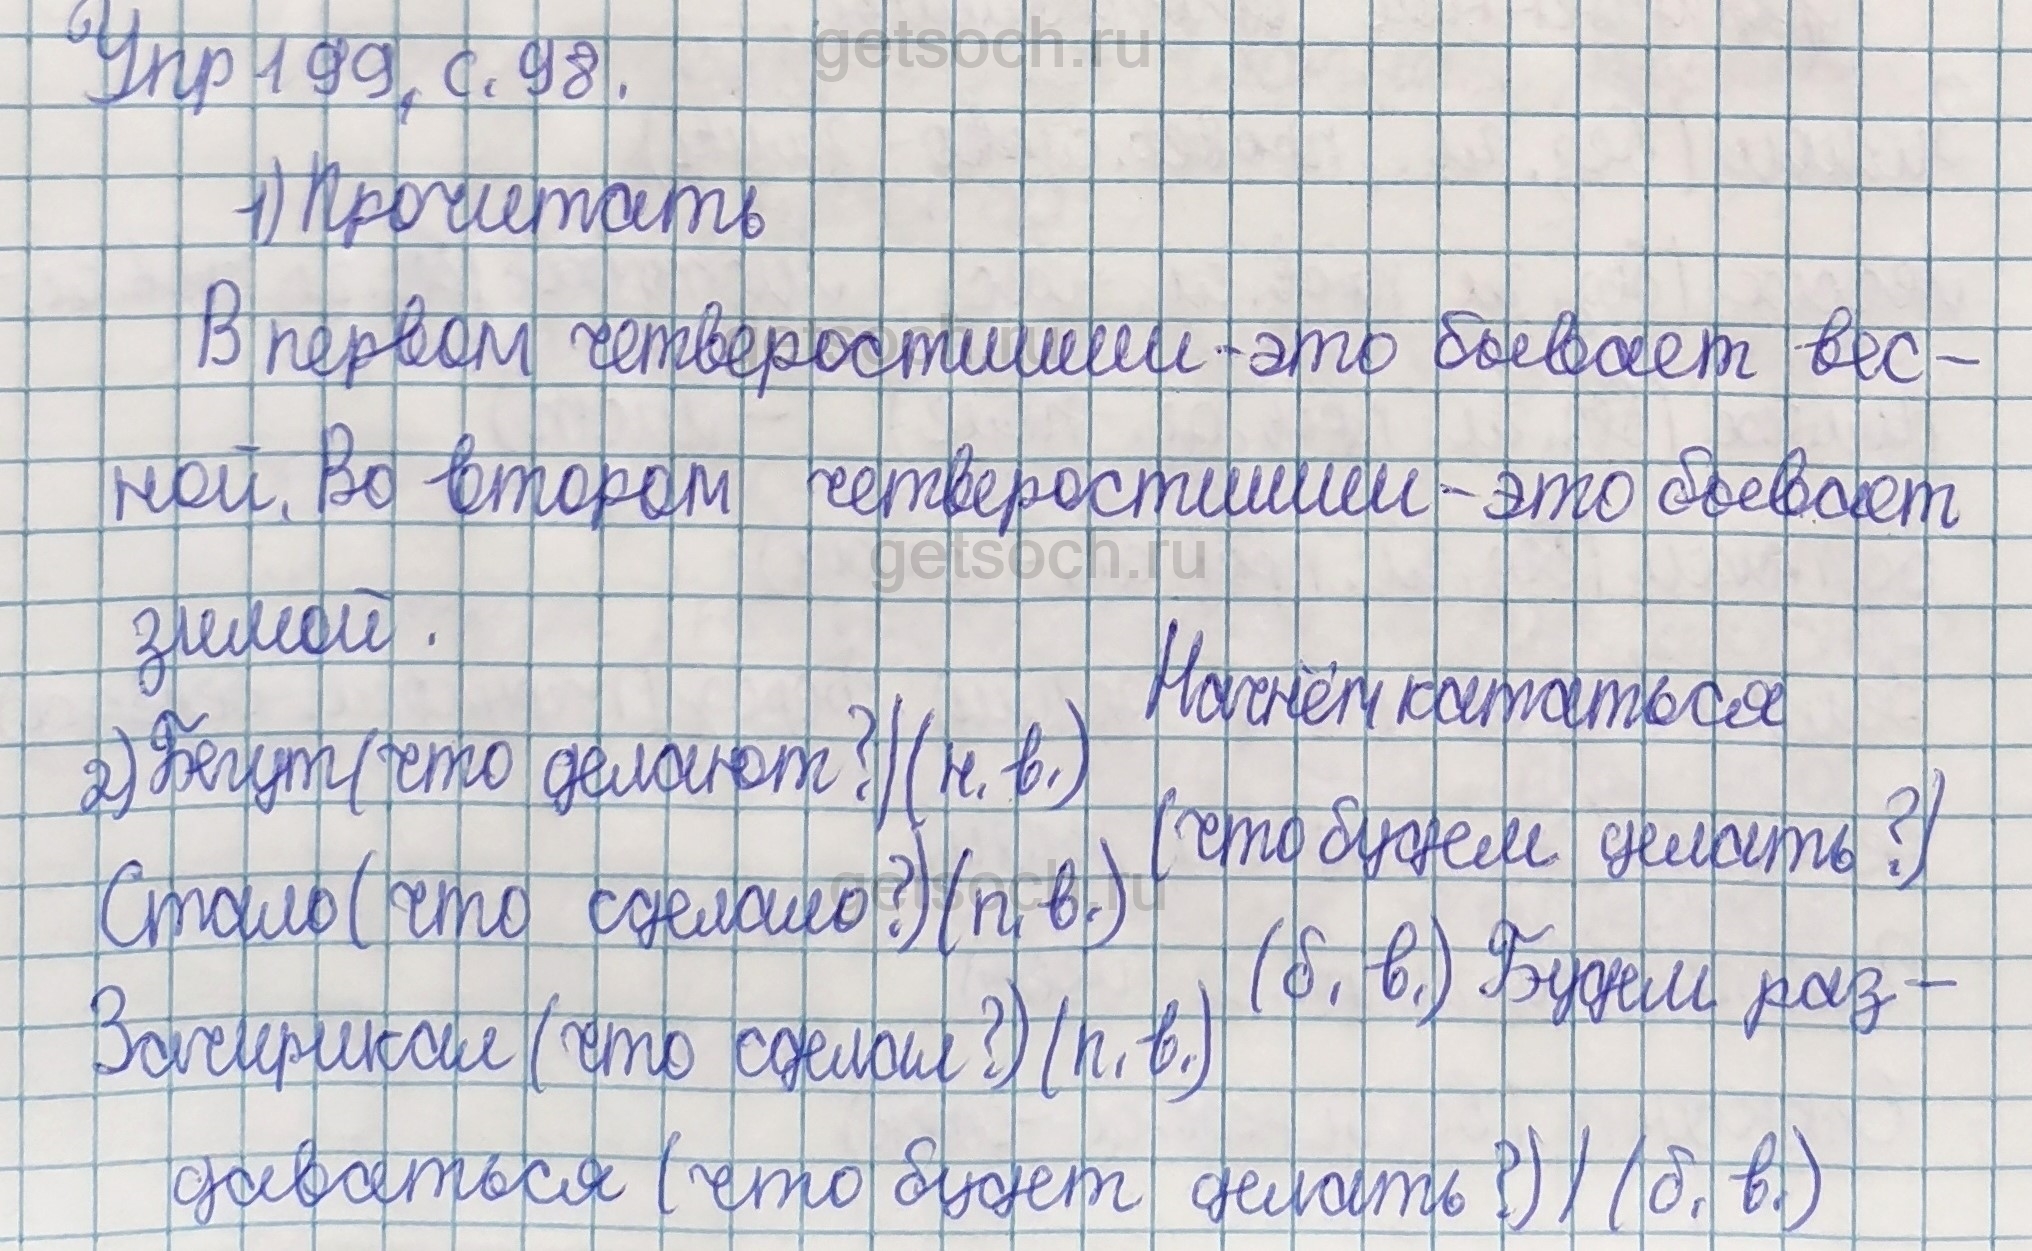 Упр 199, с. 98.
getsoch.ru
1) Прочитать
В первом четверостишии - это бывает вес-
ной. Во втором четверостишии - это бывает
getsoch.ru
зимой.
2) Бегут (что делают?) (н. в.)
Стало (что сделало?) (п. в.)
getsoch.ru
Зачирикал (что сделал?) (п. в.)
Начнём кататься
(что будем делать?)
(б. в.) Будем раз-
даваться (что будет делать?) (б. в.)